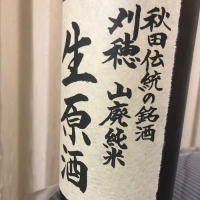 秋田伝統の銘酒
刈穂 山廃純米
生原酒